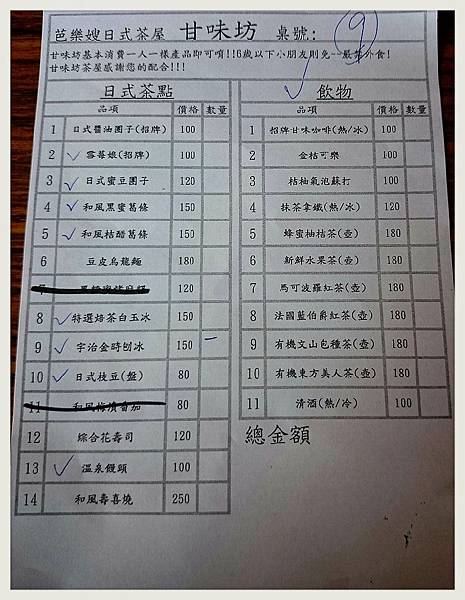 芭樂嫂日式茶屋 甘味坊 桌號: 9
甘味坊基本消費一人一樣產品即可唷!!6歲以下小朋友則免~~嚴禁外食!
甘味坊茶屋感謝您的配合!!!
日式茶點
品項 價格 數量
1 日式醬油團子(招牌) 100
2 雪莓娘(招牌) 100
3 日式蜜豆團子 120
4 和風黑蜜葛條 150
5 和風桔醋葛條 150
6 豆皮烏龍麵 180
7 120
8 特選焙茶白玉冰 150
9 宇治金時刨冰 150 一
10 日式枝豆(盤) 80
11 和風梅漬番茄 80
12 綜合花壽司 120
13 溫泉饅頭 100
14 和風壽喜燒 250
飲物
品項 價格 數量
1 招牌甘味咖啡(熱/冰) 100
2 金桔可樂 100
3 桔柚氣泡蘇打 100
4 抹茶拿鐵(熱/冰) 120
5 蜂蜜柚桔茶(壺) 180
6 新鮮水果茶(壺) 180
7 馬可波羅紅茶(壺) 180
8 法國藍伯爵紅茶(壺) 180
9 有機文山包種茶(壺) 180
10 有機東方美人茶(壺) 180
11 清酒(熱/冷) 100
總金額